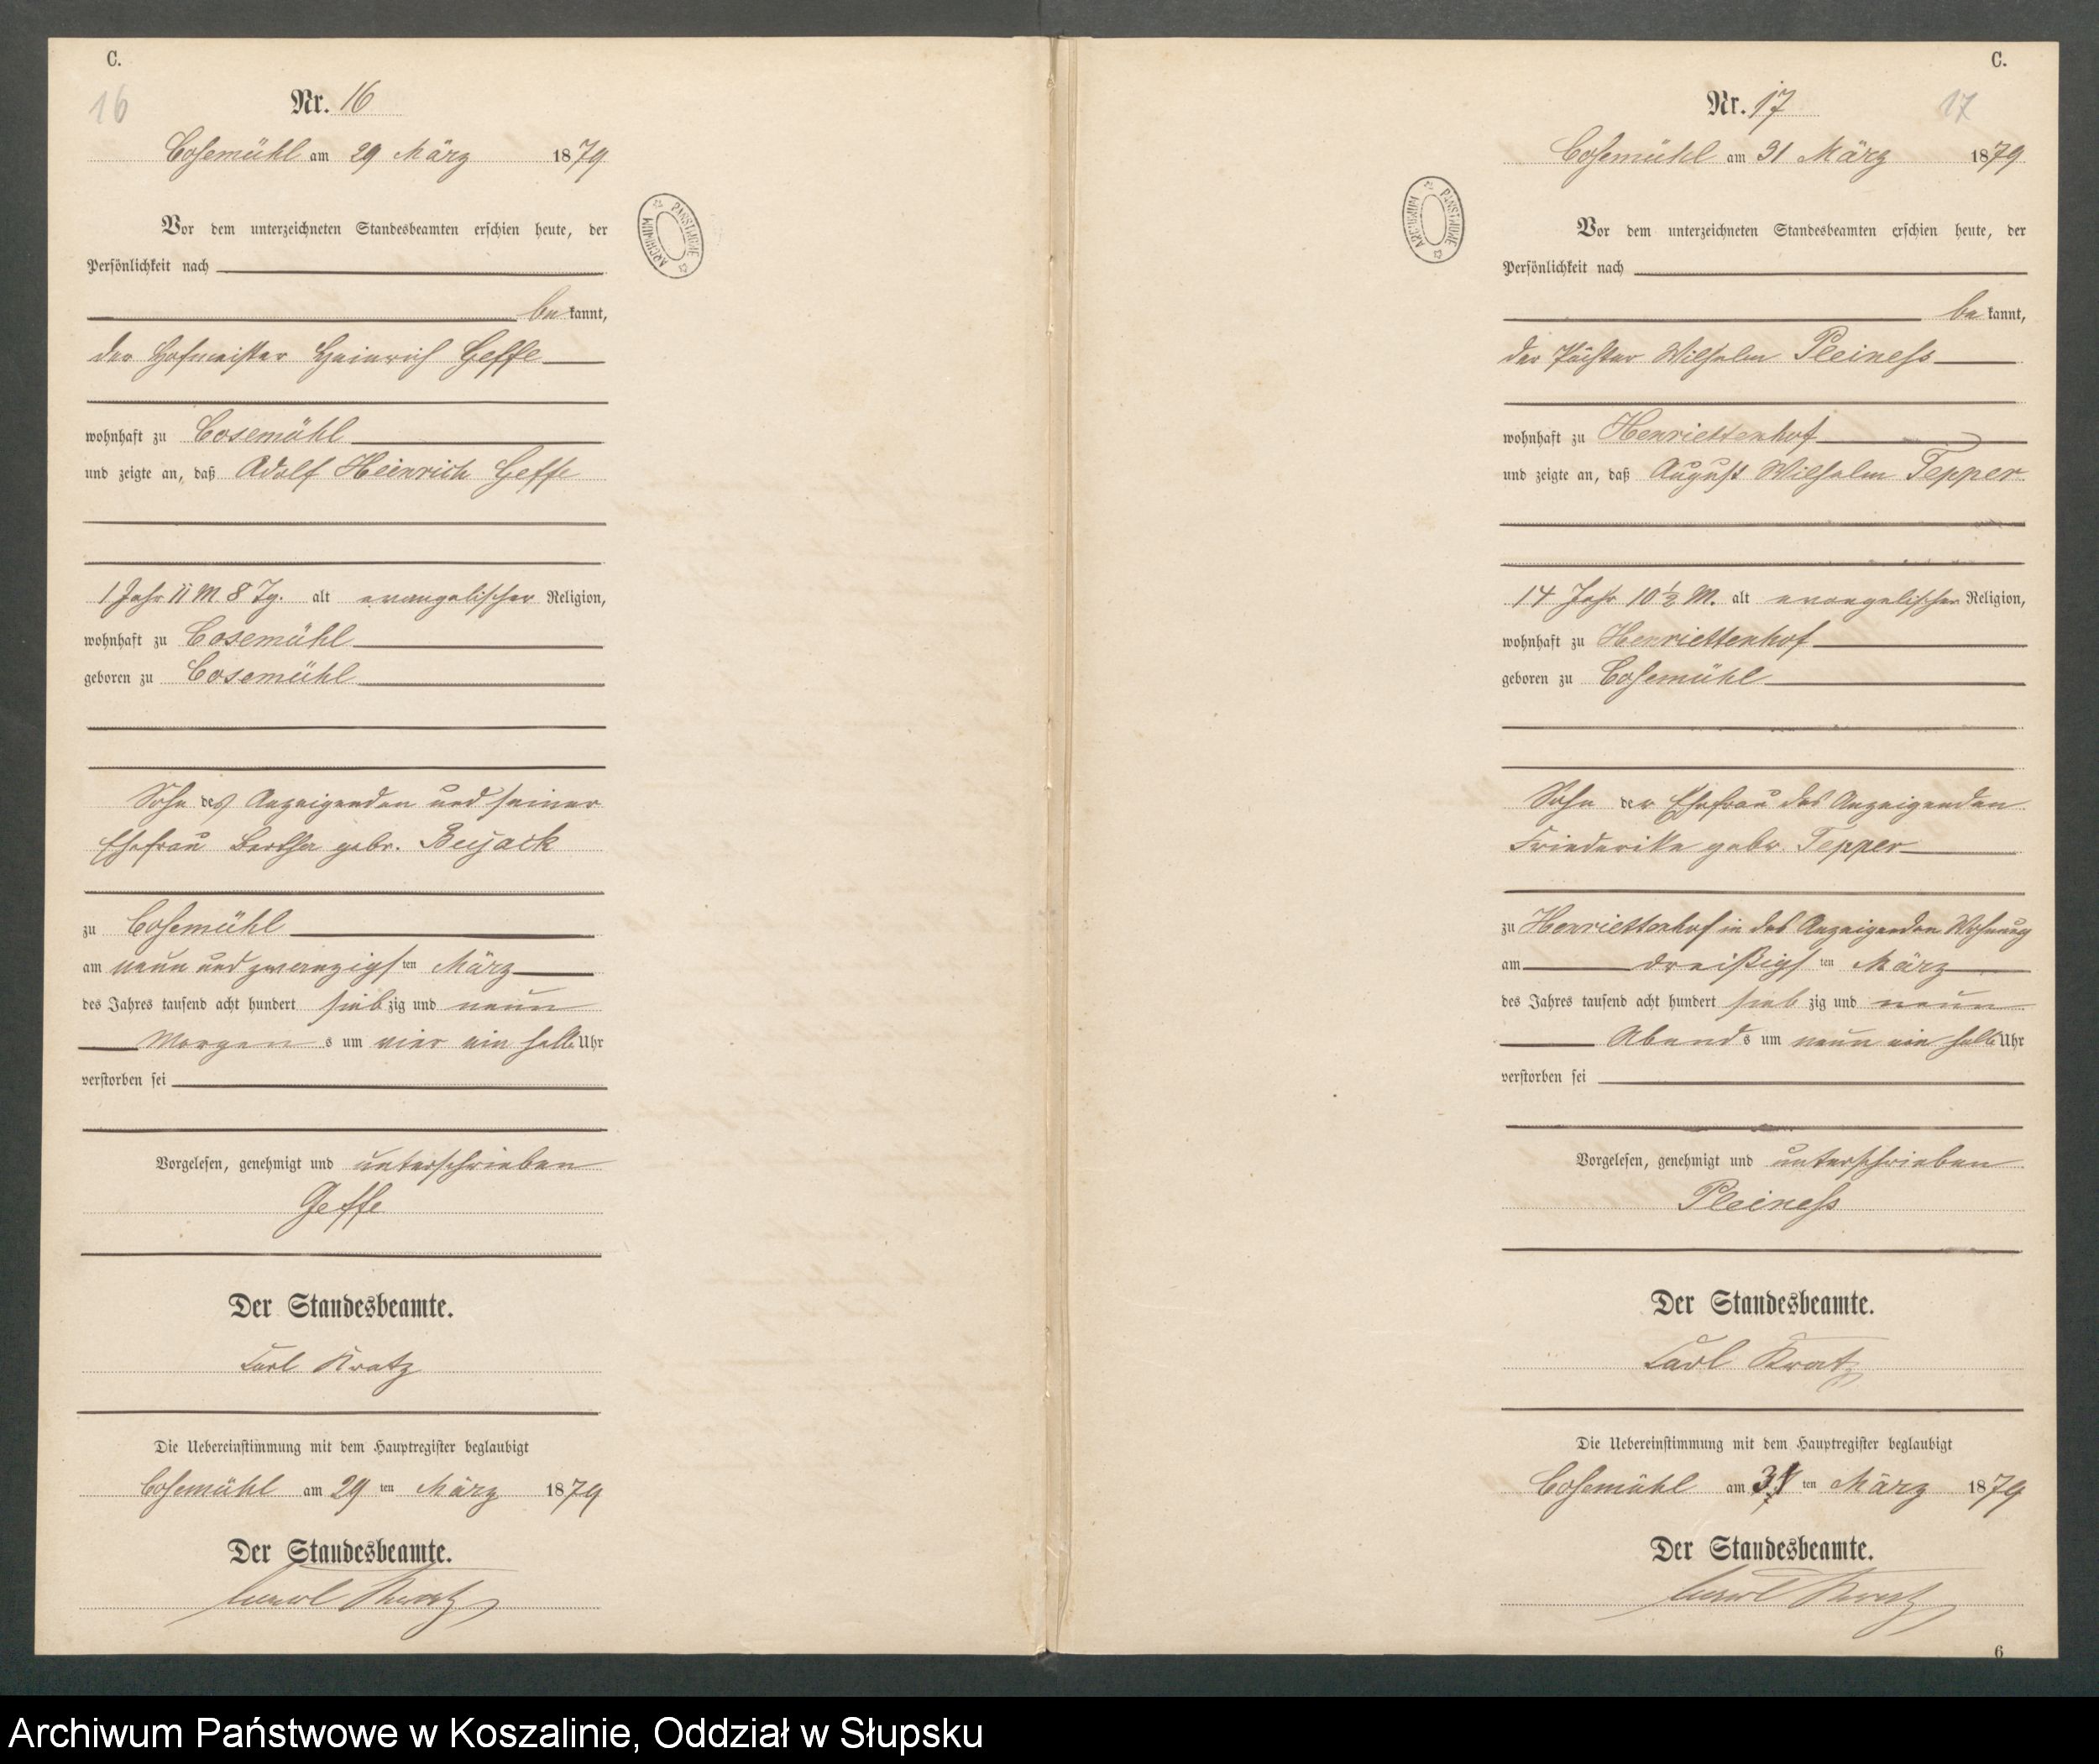 C.
16
Nr. 16
Cosemühl am 29 März 1879
ARCHIWUM PAŃSTWOWE
Vor dem unterzeichneten Standesbeamten erschien heute, der
Persönlichkeit nach
be kannt,
der Hofmeister Heinrich Geffe
wohnhaft zu Cosemühl
und zeigte an, daß Adolf Heinrich Geffe
1 Jahr 11 M. 8 Tg. alt evangelischer Religion,
wohnhaft zu Cosemühl
geboren zu Cosemühl
Sohn des Anzeigenden und seiner
Ehefrau Bertha gebr. Bujack
zu Cosemühl
am neun und zwanzigsten März
des Jahres tausend acht hundert siebzig und neun
Morgens um vier ein halb Uhr
verstorben sei
Vorgelesen, genehmigt und unterschrieben
Geffe
Der Standesbeamte.
Carl Kratz
Die Uebereinstimmung mit dem Hauptregister beglaubigt
Cosemühl am 29 ten März 1879
Der Standesbeamte.
Carl Kratz
C.
Nr. 17
17
Cosemühl am 31 März 1879
ARCHIWUM PAŃSTWOWE
Vor dem unterzeichneten Standesbeamten erschien heute, der
Persönlichkeit nach
be kannt,
der Pächter Wilhelm Pleiness
wohnhaft zu Henriettenhof
und zeigte an, daß August Wilhelm Tepper
14 Jahr 10 ½ M. alt evangelischer Religion,
wohnhaft zu Henriettenhof
geboren zu Cosemühl
Sohn der Ehefrau des Anzeigenden
Friederike gebr. Tepper
zu Henriettenhof in des Anzeigenden Wohnung
am dreißigsten März
des Jahres tausend acht hundert siebzig und neun
Abends um neun ein halb Uhr
verstorben sei
Vorgelesen, genehmigt und unterschrieben
Pleiness
Der Standesbeamte.
Carl Kratz
Die Uebereinstimmung mit dem Hauptregister beglaubigt
Cosemühl am 31 ten März 1879
Der Standesbeamte.
Carl Kratz
6
Archiwum Państwowe w Koszalinie, Oddział w Słupsku